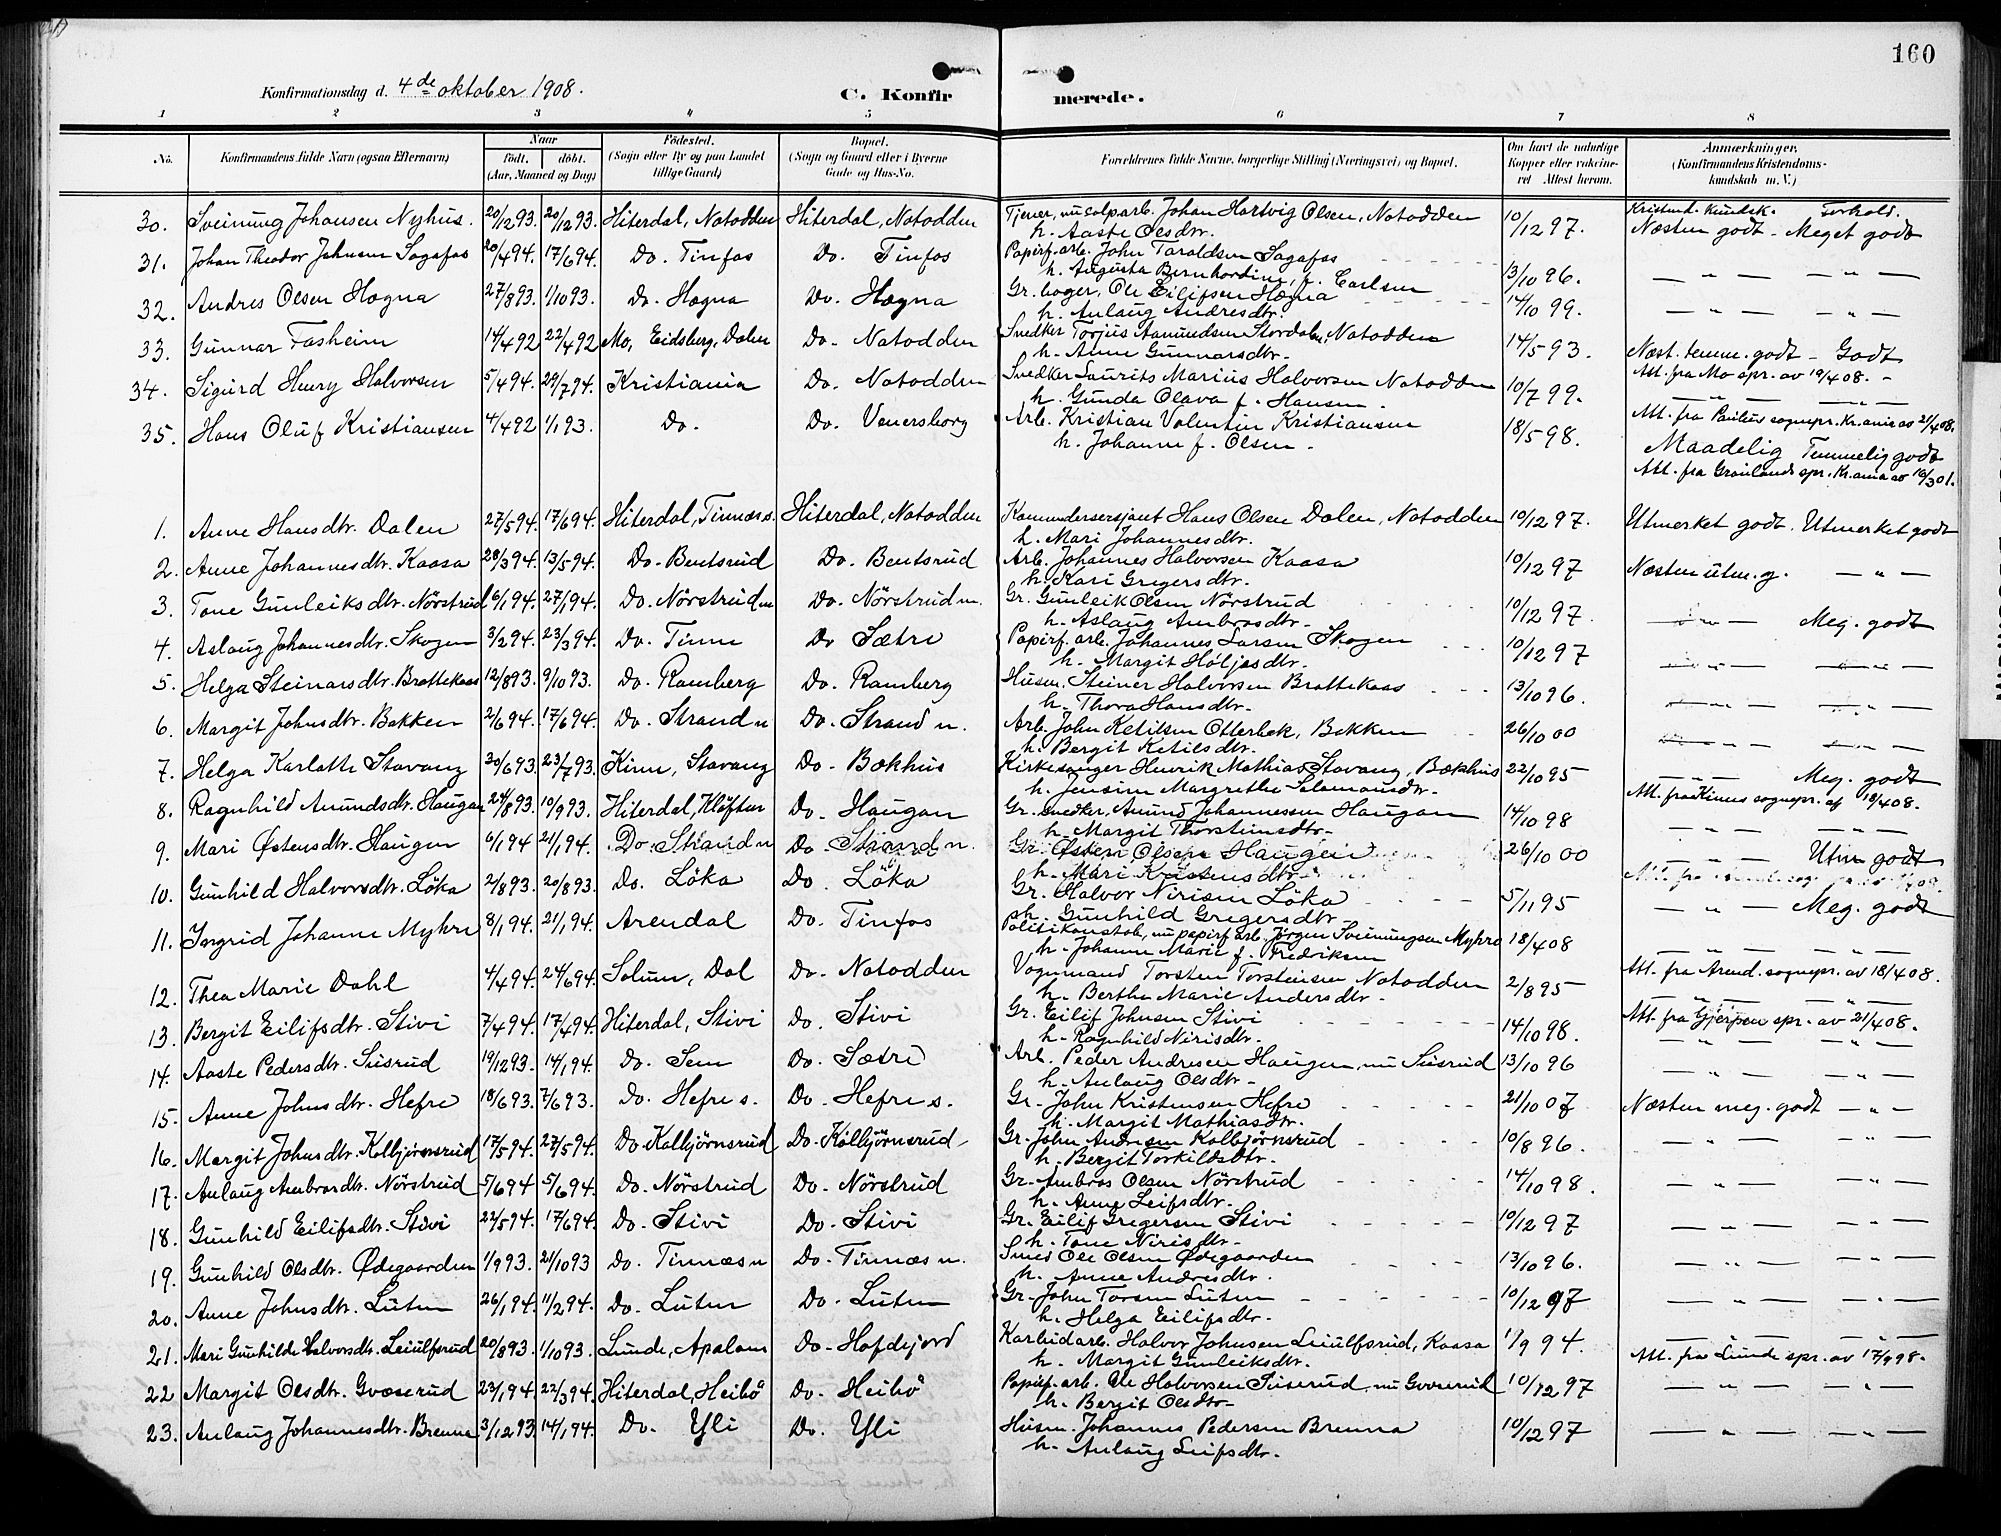 160
Konfirmationsdag d. 4de oktober 1908.
C. Konfirmerede.
1 2 3 4 5 6 7 8
No. Konfirmandens fulde Navn (ogsaa Efternavn) Naar født. døbt. (Aar, Maaned og Dag) Födested. (Sogn eller By og paa Landet tillige Gaard) Bopæl. (Sogn og Gaard eller i Byerne Gade og Hus-No. Forældrenes fulde Navne, borgerlige Stilling (Næringsvei) og Bopæl. Om havt de naturlige Kopper eller vaccineret Attest herom. Anmærkninger, (Konfirmandens Kristendomskundskab m. V.)
Kristend. kundsk. Forhold.
30. Sveinung Johansen Nyhus. 20/12 93. 20/12 93. Hiterdal, Natodden Hiterdal, Natodden Tjener, nu salparb. Johan Hartvig Olsen, Notodden 10/12 97. Næsten godt - Meget godt
h. Aaste Olsdtr.
31. Johan Theodor Johnsen Sagafos 20/4 94. 17/6 94. Do. Tinfos Do. Tinfos Papirf. arb. John Taraldsen Sagafos 13/10 96. — " — — " —
h. Augusta Bernhardine, f. Carlsen
32. Andres Olsen Hogna 27/8 93. 1/10 93. Do. Hogna Do. Hogna Gr. bager, Ole Eilifsen Hogna 14/10 99. — " — — " —
h. Aulaug Andresdtr.
33. Gunnar Fasheim 14/4 92 22/4 92 Mo, Eidsberg, Dalen Do. Natodden Snedker Torjus Aamundsen Stordalen, Natodden 14/5 93. Næst. temme. godt - Godt
h. Anne Gunnarsdtr. Att. fra Mo spr. av 19/4 08.
34. Sigurd Henry Halvorsen 5/4 94. 29/7 94. Kristiania Do. Natodden Snedker Laurits Marius Halvorsen Natodden 10/7 99. — " — — " —
h. Gunda Olava f. Hansen. Att. fra Paulus sognepr. Kr.ania av 21/4 08.
35. Hans Oluf Kristiansen 4/4 92 1/1 93. Do. Do. Venersborg Arb. Kristian Valentin Kristiansen 18/5 98. Maadelig Temmelig godt
h. Johanne f. Olsen. Att. fra Grønlands spr. Kr.ania av 16/3 01.
1. Anne Hansdtr. Dalen 27/5 94. 17/6 94. Hiterdal, Tinnæs s. Hiterdal, Natodden Hans Olsen Dalen, Natodden 10/12 97. Utmerket godt. Utmerket godt
h. Mari Johannesdtr.
2. Anne Johannesdtr. Kaasa 28/3 94. 13/5 94. Do. Bentsrud Do. Bentsrud Arb. Johannes Halvorsen Kaasa 10/12 97 Næsten utm. g. — " —
h. Kari Gregersdtr.
3. Tone Gunleiksdtr. Nörstrud 6/1 94. 27/1 94. Do. Nörstrud n Do. Nörstrud n. Gr. Gunleik Olsen Nörstrud 10/12 97. — " — Meg. godt
h. Aslaug Ambrosdtr.
4. Aslaug Johannesdtr. Skogen 3/2 94. 23/3 94. Do. Tinne Do Sætre Papirf. arb. Johannes Larsen Skogen 10/12 97 — " — — " —
h. Margit Höljesdtr.
5. Helga Steinarsdtr. Brattekaas 12/8 93. 9/10 93. Do. Ramberg Do. Ramberg Husm. Steinar Halvorsen Brattekaas 13/10 96. — " — — " —
h. Thora Hansdtr.
6. Margit Johnsdtr. Bakken 2/6 94. 17/6 94. Do. Strand n Do. Strand n. Arb. John Ketilsen Otterbek, Bakken 26/10 00 — " — — " —
h. Bergit Ketilsdtr.
7. Helga Karlotte Stavang 30/6 93. 23/7 93. Kinn, Stavang Do. Bækhus Kirkesanger Henrik Mathias Stavang, Bækhus 22/10 95 — " — Meg. godt
h. Jensine Margrethe Salamonsdtr. Att. fra Kinns sognepr. af 10/4 08.
8. Ragnhild Amundsdtr. Haugan 24/8 93. 10/9 93. Hiterdal, Kløften Do. Haugan Gr. snedker, Amund Johannessen Haugan 14/10 98 — " — — " —
h. Margit Thorsteinsdtr.
9. Mari Østensdtr. Haugen 6/1 94 21/1 94. Do. Strand n Do Strand n. Gr. Østen Olsen Haugen 26/10 00 — " — Utm godt
h. Mari Kristensdtr.
10. Gunhild Halvorsdtr. Löka 2/8 93. 20/8 93. Do. Löka Do. Löka Gr. Halvor Nirisen Löka 5/11 95 — " — Meg. godt
h. Gunhild Gregersdtr.
11. Ingrid Johanne Myhre 8/1 94. 21/1 94. Arendal Do. Tinfos Politikonstab., nu papirf. arb. Jörgen Sveinungsen Myhre 18/4 08 — " — — " —
h. Johanne Marie f. Fredriksen Att. fra Arend. sognepr. av 18/4 08.
12. Thea Marie Dahl 4/4 94. 24/6 94. Solum, Dal Do. Natodden Vognmand Torsten Torstensen Natodden 2/8 95 — " — — " —
h. Berthe Marie Andersdtr. Att. fra Gjerpen spr. av 21/4 08.
13. Bergit Eilifsdtr. Stivi 7/4 94. 17/4 94. Hiterdal, Stivi Do. Stivi Gr. Eilif Johnsen Stivi 14/10 98. — " — — " —
h. Ragnhild Nirisdtr.
14. Aaste Pedersdtr. Susrud 19/12 93. 14/1 94. Do. Sem Do. Sætre Arb. Peder Andresen Haugen, nu Susrud 13/10 96 — " — — " —
h. Aulaug Olsdtr.
15. Anne Johnsdtr. Hefre 18/6 93. 7/6 93. Do. Hefre s. Do. Hefre s. Gr. John Kristensen Hefre 21/10 07 Næsten meg. godt — " —
h. Margit Mathiasdtr.
16. Margit Johnsdtr. Kolbjørnsrud 17/5 94. 27/5 94. Do. Kolbjörnsrud Do. Kolbjörnsrud Gr. John Andresen Kolbjörnsrud 10/8 96. — " — — " —
h. Bergit Torkildsdtr.
17. Aulaug Ambrosdtr. Nörstrud 5/6 94 5/6 94. Do. Nörstrud Do. Nörstrud Gr. Ambros Olsen Nörstrud 14/10 98. — " — — " —
h. Anne Leifsdtr.
18. Gunhild Eilifsdtr. Stivi 22/5 94. 17/6 94. Do. Stivi Do. Stivi Gr. Eilif Gregersen Stivi 10/12 97 — " — — " —
h. Tone Nirisdtr.
19. Gunhild Olsdtr. Ødegaarden 1/9 93. 21/10 93 Do. Tinnæs n Do. Tinnæs n. Smed Ole Olsen Ødegaarden 13/10 96. — " — — " —
h. Anne Andresdtr.
20. Anne Johnsdtr. Luten 26/1 94. 11/2 94. Do. Luten Do. Luten Gr. John Torsen Luten 10/12 97 — " — — " —
h. Helga Eilifsdtr.
21. Mari Gunhilde Halvorsdtr. Leiulfsrud 20/8 93. 1/10 93. Lunde, Apalom Do. Hofdejord Karbidarb. Halvor Johnsen Leiulfsrud, Kaasa 1/9 94. — " — — " —
h. Margit Gunleiksdtr. Att. fra Lunde spr. av 17/9 98.
22 Margit Olsdtr. Gvæserud 23/1 94. 22/3 94. Hiterdal, Heibö Do. Heibö Papirf. arb. Ole Halvorsen Susrud, nu Gvæserud 10/12 97 — " — — " —
h. Bergit Olsdtr.
23. Aulaug Johannesdtr. Brenna 3/12 93. 14/1 94. Do. Yli Do. Yli Husm. Johannes Pedersen Brenna 10/12 97 — " — — " —
h. Aulaug Leifsdtr.